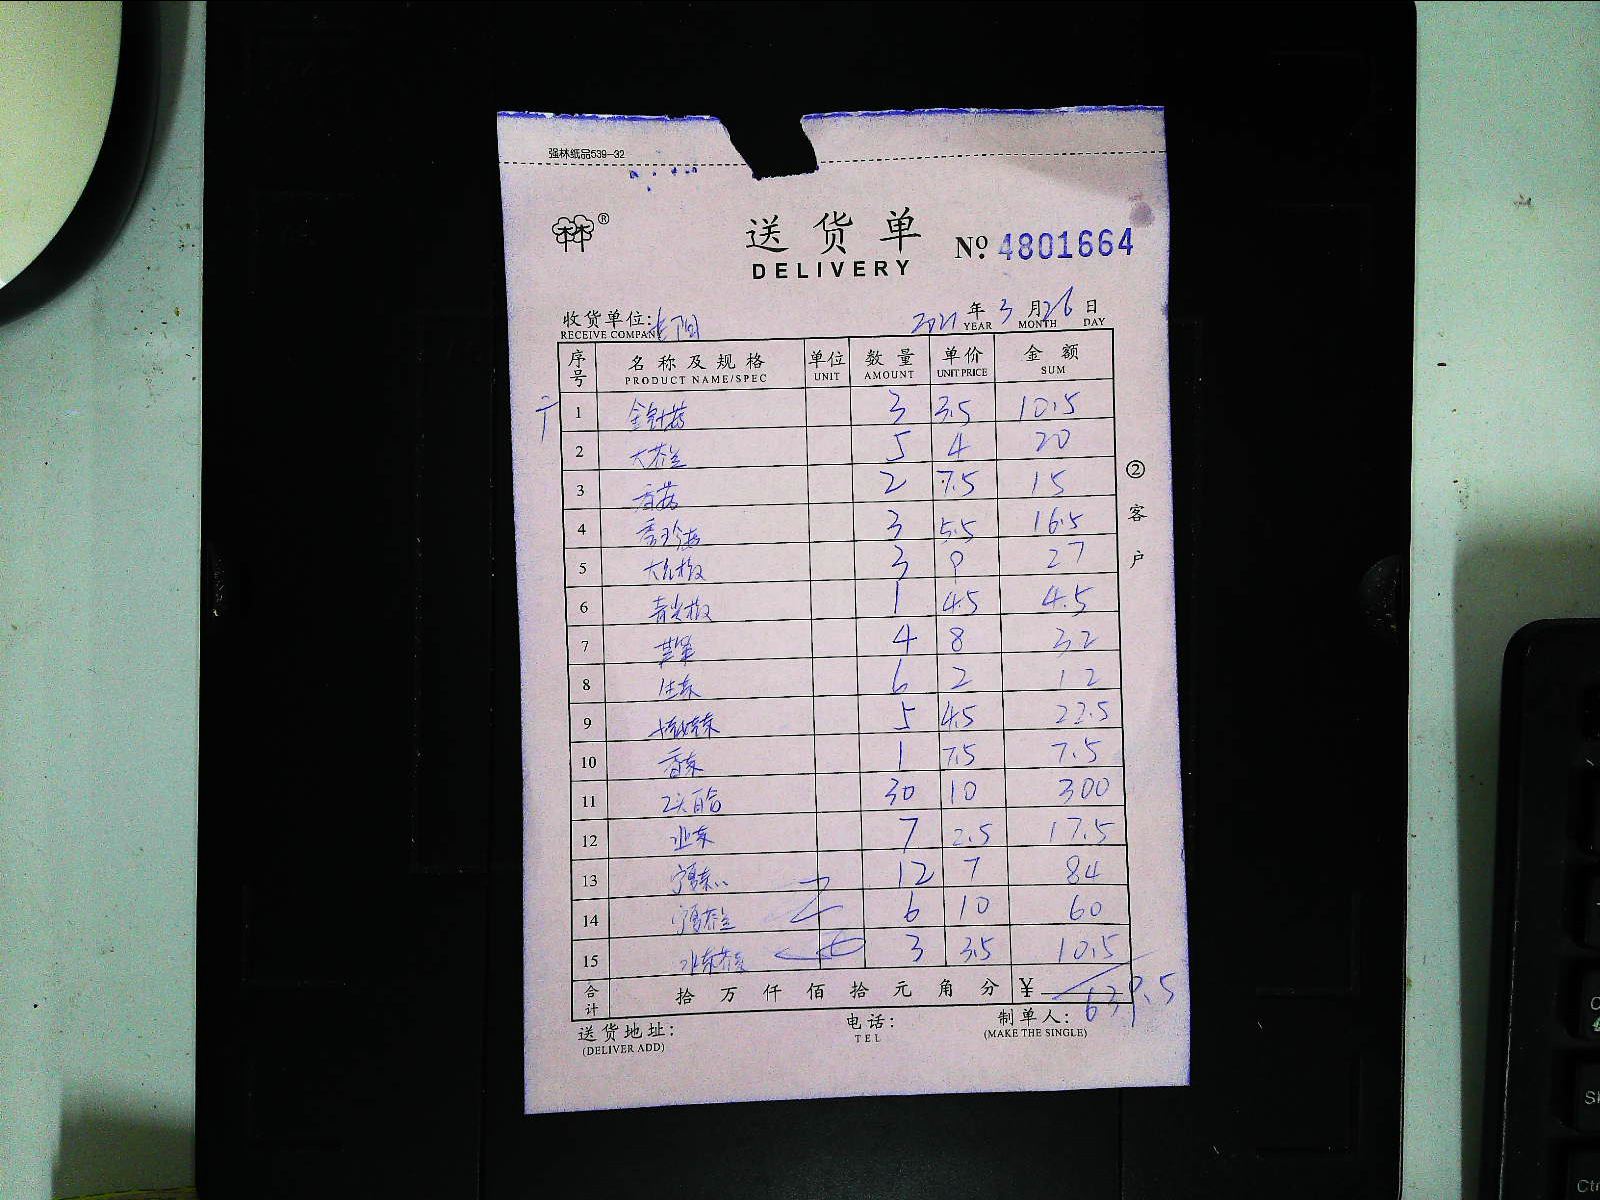 强林纸品539-32
林®
送货单
DELIVERY
No. 4801664
收货单位:
RECEIVE COMPANY
2021 年 3 月 26 日
YEAR MONTH DAY
序号 名称及规格 单位 数量 单价 金额
PRODUCT NAME/SPEC UNIT AMOUNT UNIT PRICE SUM
1 金针菇 3 3.5 10.5
2 5 4 20
3 香菇 2 7.5 15
4 秀珍菇 3 5.5 16.5
5 3 9 27
6 青尖椒 1 4.5 4.5
7 4 8 32
8 生菜 6 2 12
9 5 4.5 22.5
10 香菜 1 7.5 7.5
11 百合 30 10 300
12 7 2.5 17.5
13 宁夏菜心 12 7 84
14 宁夏芥兰 6 10 60
15 3 3.5 10.5
合计 拾万仟佰拾元角分 ¥ 639.5
②客户
送货地址: 电话: 制单人:
(DELIVER ADD) TEL (MAKE THE SINGLE)